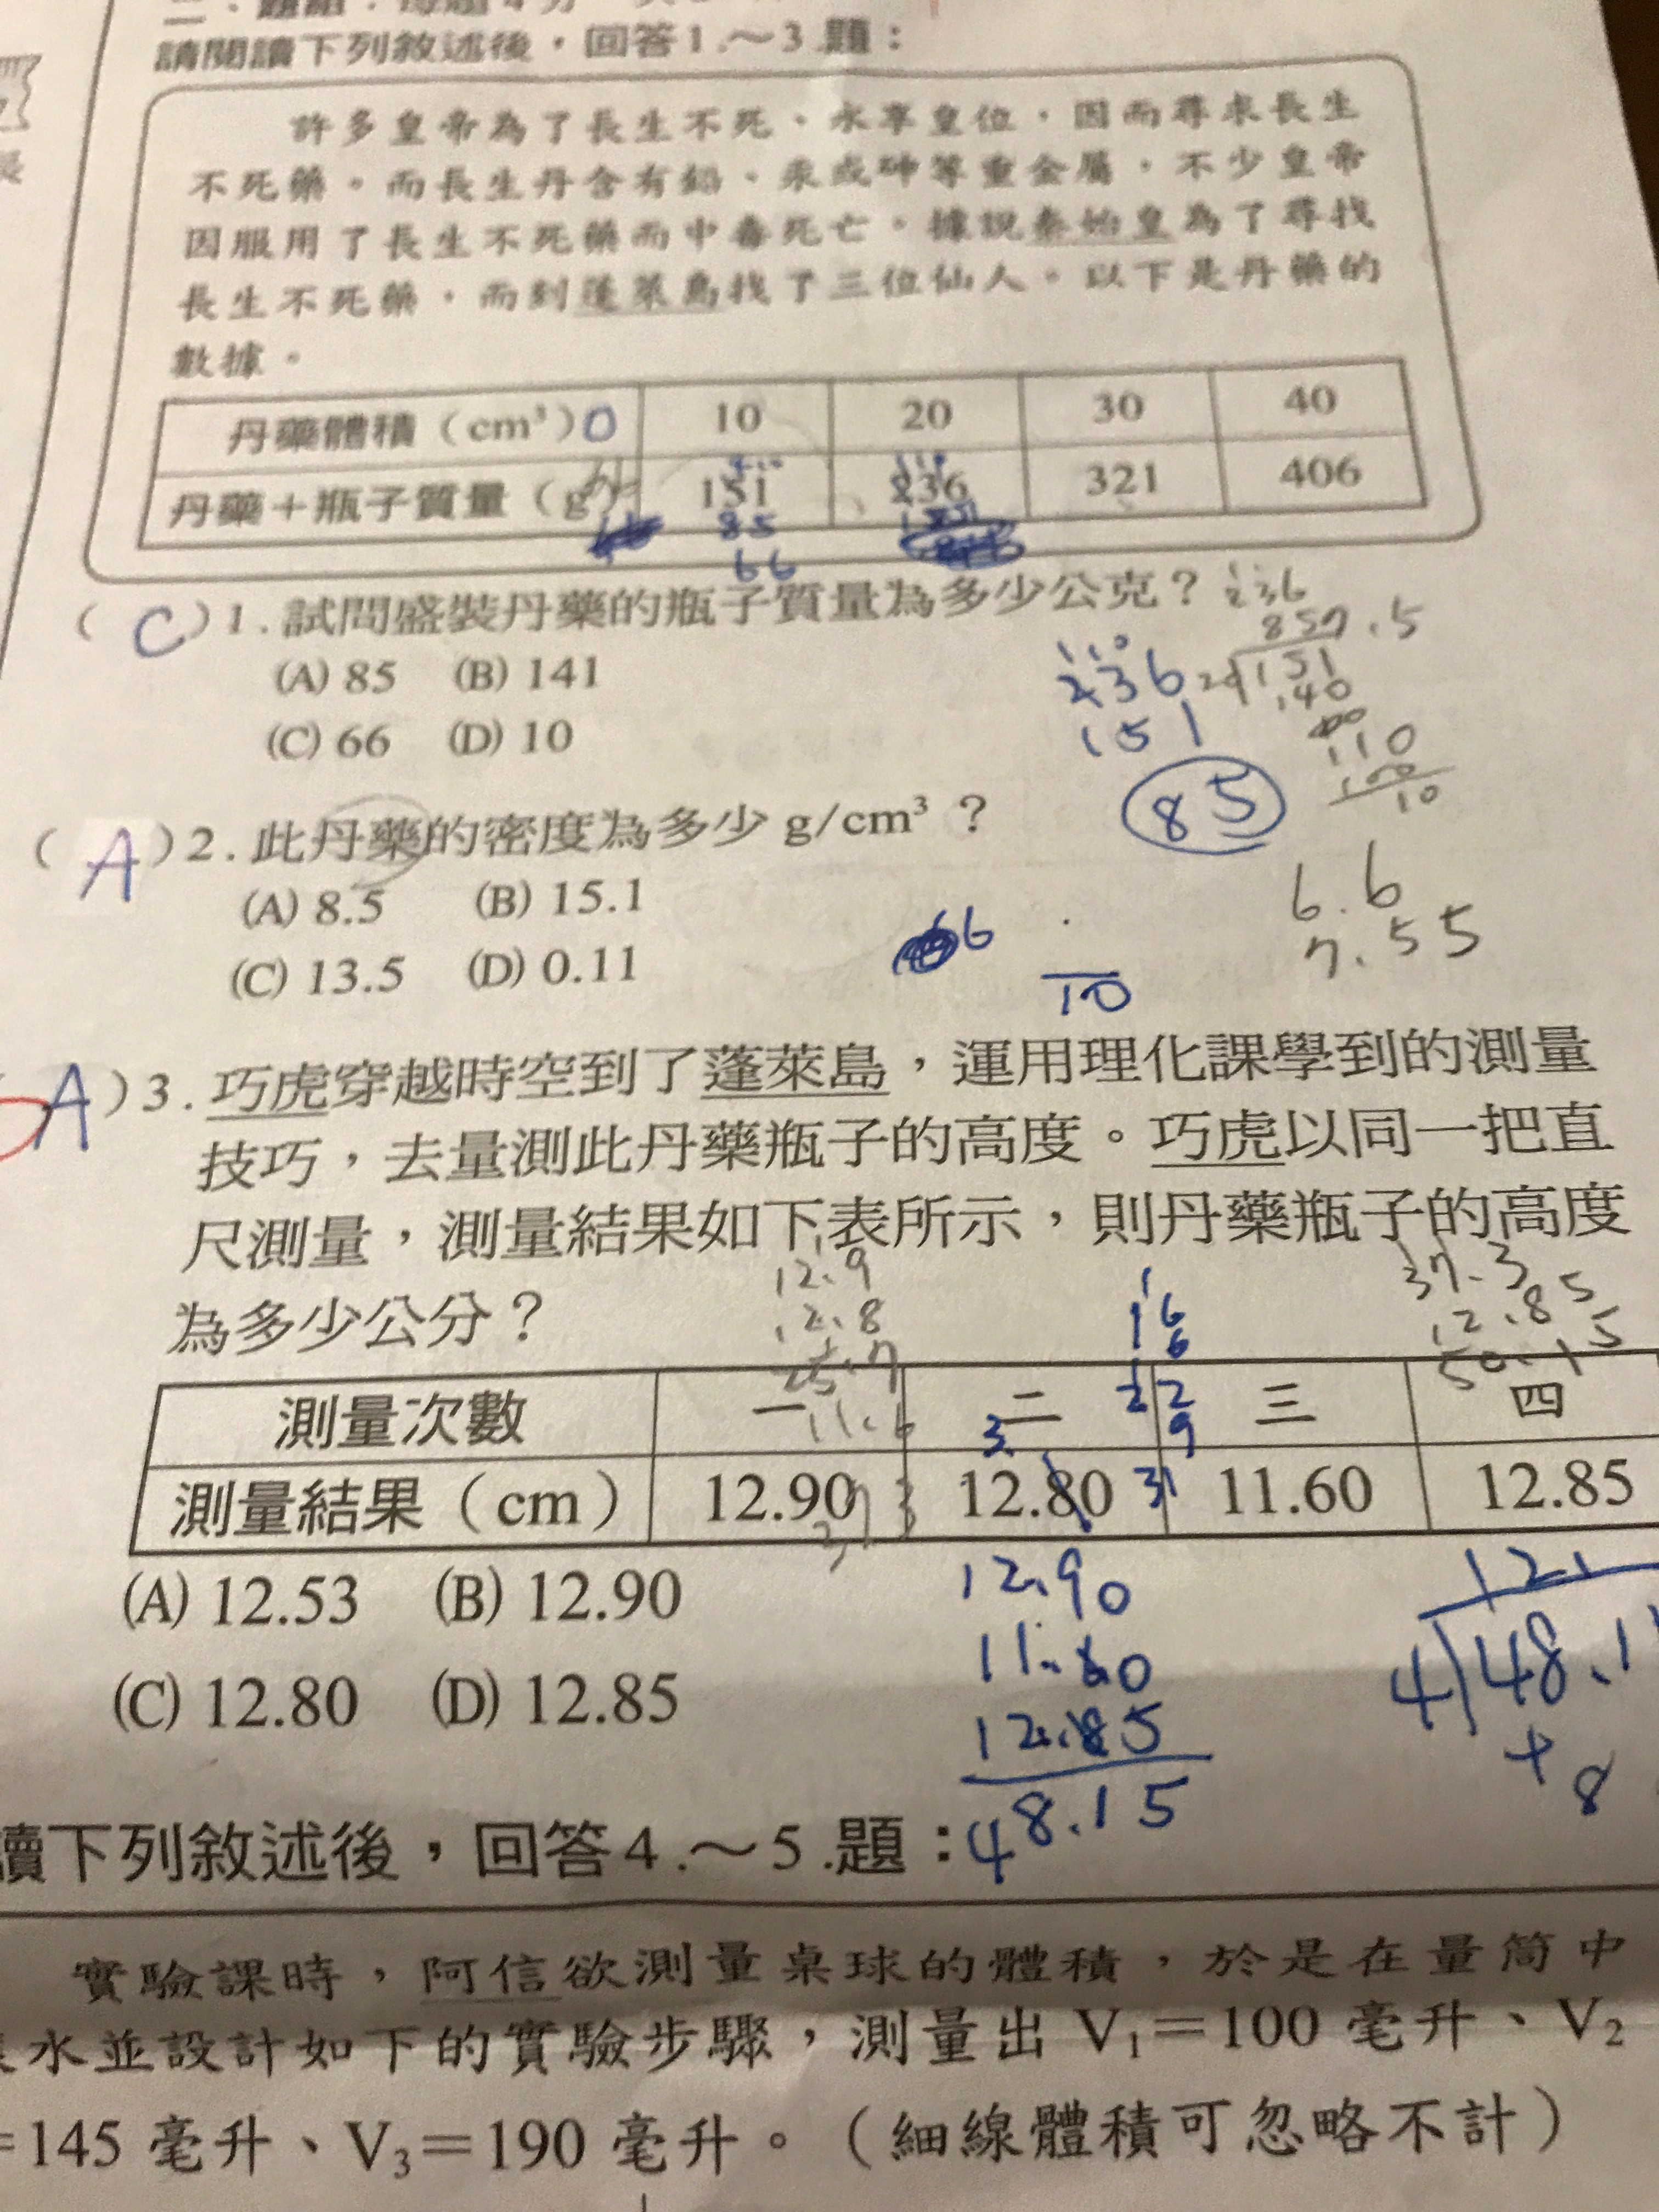 請閱讀下列敘述後，回答1.～3.題：
許多皇帝為了長生不死、永享皇位，因而尋求長生
不死藥。而長生丹含有鉛、汞或砷等重金屬，不少皇帝
因服用了長生不死藥而中毒死亡。據說秦始皇為了尋找
長生不死藥，而到蓬萊島找了三位仙人。以下是丹藥的
數據。
丹藥體積（cm³） 0 10 20 30 40
丹藥＋瓶子質量（g） 151 236 321 406
85
66
（ C ）1.試問盛裝丹藥的瓶子質量為多少公克？
(A) 85 (B) 141
(C) 66 (D) 10
236
151
85
（ A ）2.此丹藥的密度為多少 g/cm³？
(A) 8.5 (B) 15.1
(C) 13.5 (D) 0.11
66
10
6.6
7.55
A ）3.巧虎穿越時空到了蓬萊島，運用理化課學到的測量
技巧，去量測此丹藥瓶子的高度。巧虎以同一把直
尺測量，測量結果如下表所示，則丹藥瓶子的高度
為多少公分？
12.9
12.8
25.7
11.6
37.3
12.85
50.15
測量次數 一 二 三 四
測量結果（cm） 12.90 12.80 11.60 12.85
(A) 12.53 (B) 12.90
(C) 12.80 (D) 12.85
12.90
11.60
12.85
48.15
讀下列敘述後，回答4.～5.題：
實驗課時，阿信欲測量桌球的體積，於是在量筒中
水並設計如下的實驗步驟，測量出 V₁＝100 毫升、V₂
＝145 毫升、V₃＝190 毫升。（細線體積可忽略不計）